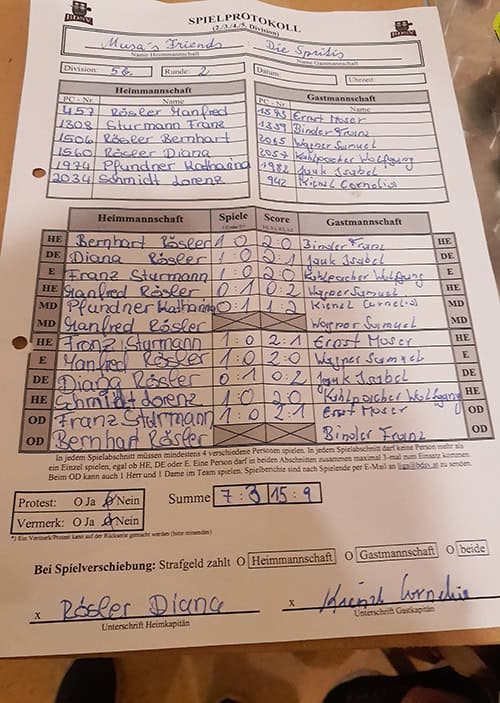 BDSV BDSV
SPIELPROTOKOLL
(2./3./4./5. Division)
Musa's Friends : Die Spritis
Name Heimmannschaft Name Gastmannschaft
Division: 5b. Runde: 2 Datum: Uhrzeit:
Heimmannschaft Gastmannschaft
PC - Nr. Name PC - Nr. Name
457 Rösler Manfred 1595 Ernst Moser
1308 Sturmann Franz 1359 Binder Franz
1506 Rösler Bernhart 2065 Wagner Samuel
1560 Rösler Diana 2057 Kohlpaicher Wolfgang
1974 Pfundner Katharina 1982 Jauk Isabel
2034 Schmidt Lorenz 942 Kienzl Cornelia
Heimmannschaft Spiele Score Gastmannschaft
HE Bernhart Rösler 1:0 2:0 Binder Franz HE
DE Diana Rösler 1:0 2:1 Jauk Isabel DE
E Franz Sturmann 1:0 2:0 Kohlpaicher Wolfgang E
HE Manfred Rösler 0:1 0:2 Wagner Samuel HE
MD Pfundner Katharina 0:1 1:2 Kienzl Cornelia MD
MD Manfred Rösler Wagner Samuel MD
HE Franz Sturmann 1:0 2:1 Ernst Moser HE
E Manfred Rösler 1:0 2:0 Wagner Samuel E
DE Diana Rösler 0:1 0:2 Jauk Isabel DE
HE Schmidt Lorenz 1:0 2:0 Kohlpaicher Wolfgang HE
OD Franz Sturmann 1:0 2:1 Ernst Moser OD
OD Bernhart Rösler Binder Franz OD
In jedem Spielabschnitt müssen mindestens 4 verschiedene Personen spielen. In jedem Spielabschnitt darf keine Person mehr als
ein Einzel spielen, egal ob HE, DE oder E. Eine Person darf in beiden Abschnitten zusammen maximal 3-mal zum Einsatz kommen.
Beim OD kann auch 1 Herr und 1 Dame im Team spielen. Spielberichte sind nach Spielende per E-Mail an liga@bdsv.at zu senden.
Protest: O Ja O Nein Summe 7:3 15:9
Vermerk: O Ja O Nein
*) Ein Vermerk/Protest kann auf der Rückseite gemacht werden (bitte ankreuzen)
Bei Spielverschiebung: Strafgeld zahlt O Heimmannschaft O Gastmannschaft O beide
x Rösler Diana x Kienzl Cornelia
Unterschrift Heimkapitän Unterschrift Gastkapitän